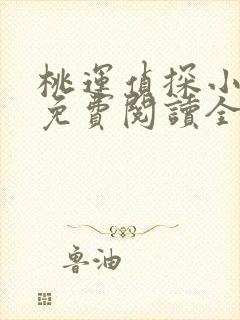 桃運偵探小
免費閱讀全
魯油